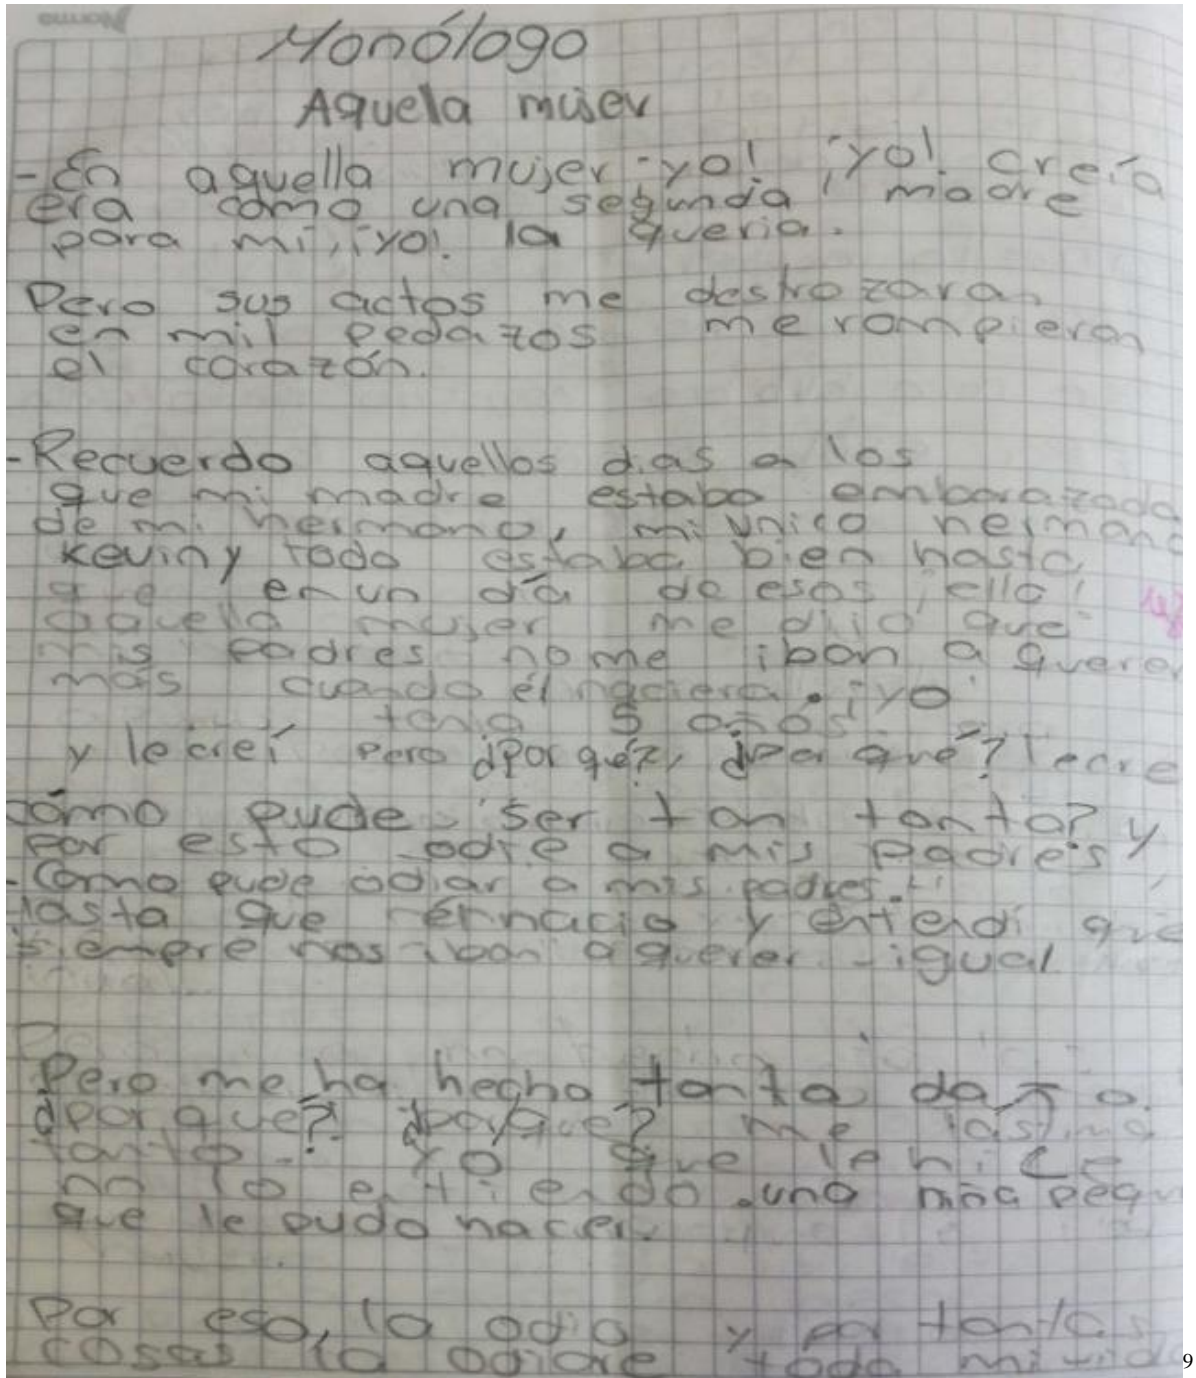 Norma
Monólogo
Aquela mujer
-En aquella mujer ¡yo! ¡yo! creía
era como una segunda madre
para mi, ¡yo! la queria.
Pero sus actos me destrozaran
en mil pedazos me rompieron
el corazón.
-Recuerdo aquellos dias a los
que mi madre estaba embarazada
de mi hermano, mi unico hermano
Kevin y todo estaba bien hasta
que en un día de esos ¡ella!
aquella mujer me dijo que
mis padres no me iban a querer
más cuando él naciera. ¡yo
tenia 5 años!
y le creí pero ¿Por qué?, ¿por qué? le cre
cómo pude ser tan tonta? y
por esto odie a mis padres y
-Como pude odiar a mis padres.
Hasta que nació y entendí que
siempre nos iban a querer igual
Pero me ha hecho tanto daño.
¿por que? ¿por que? me lastimo
tanto.? yo que le hice
no lo entiendo. una niña pequ
que le pudo hacer.
Por eso, la odio y por tantas
cosas la odiare toda mi vida
9